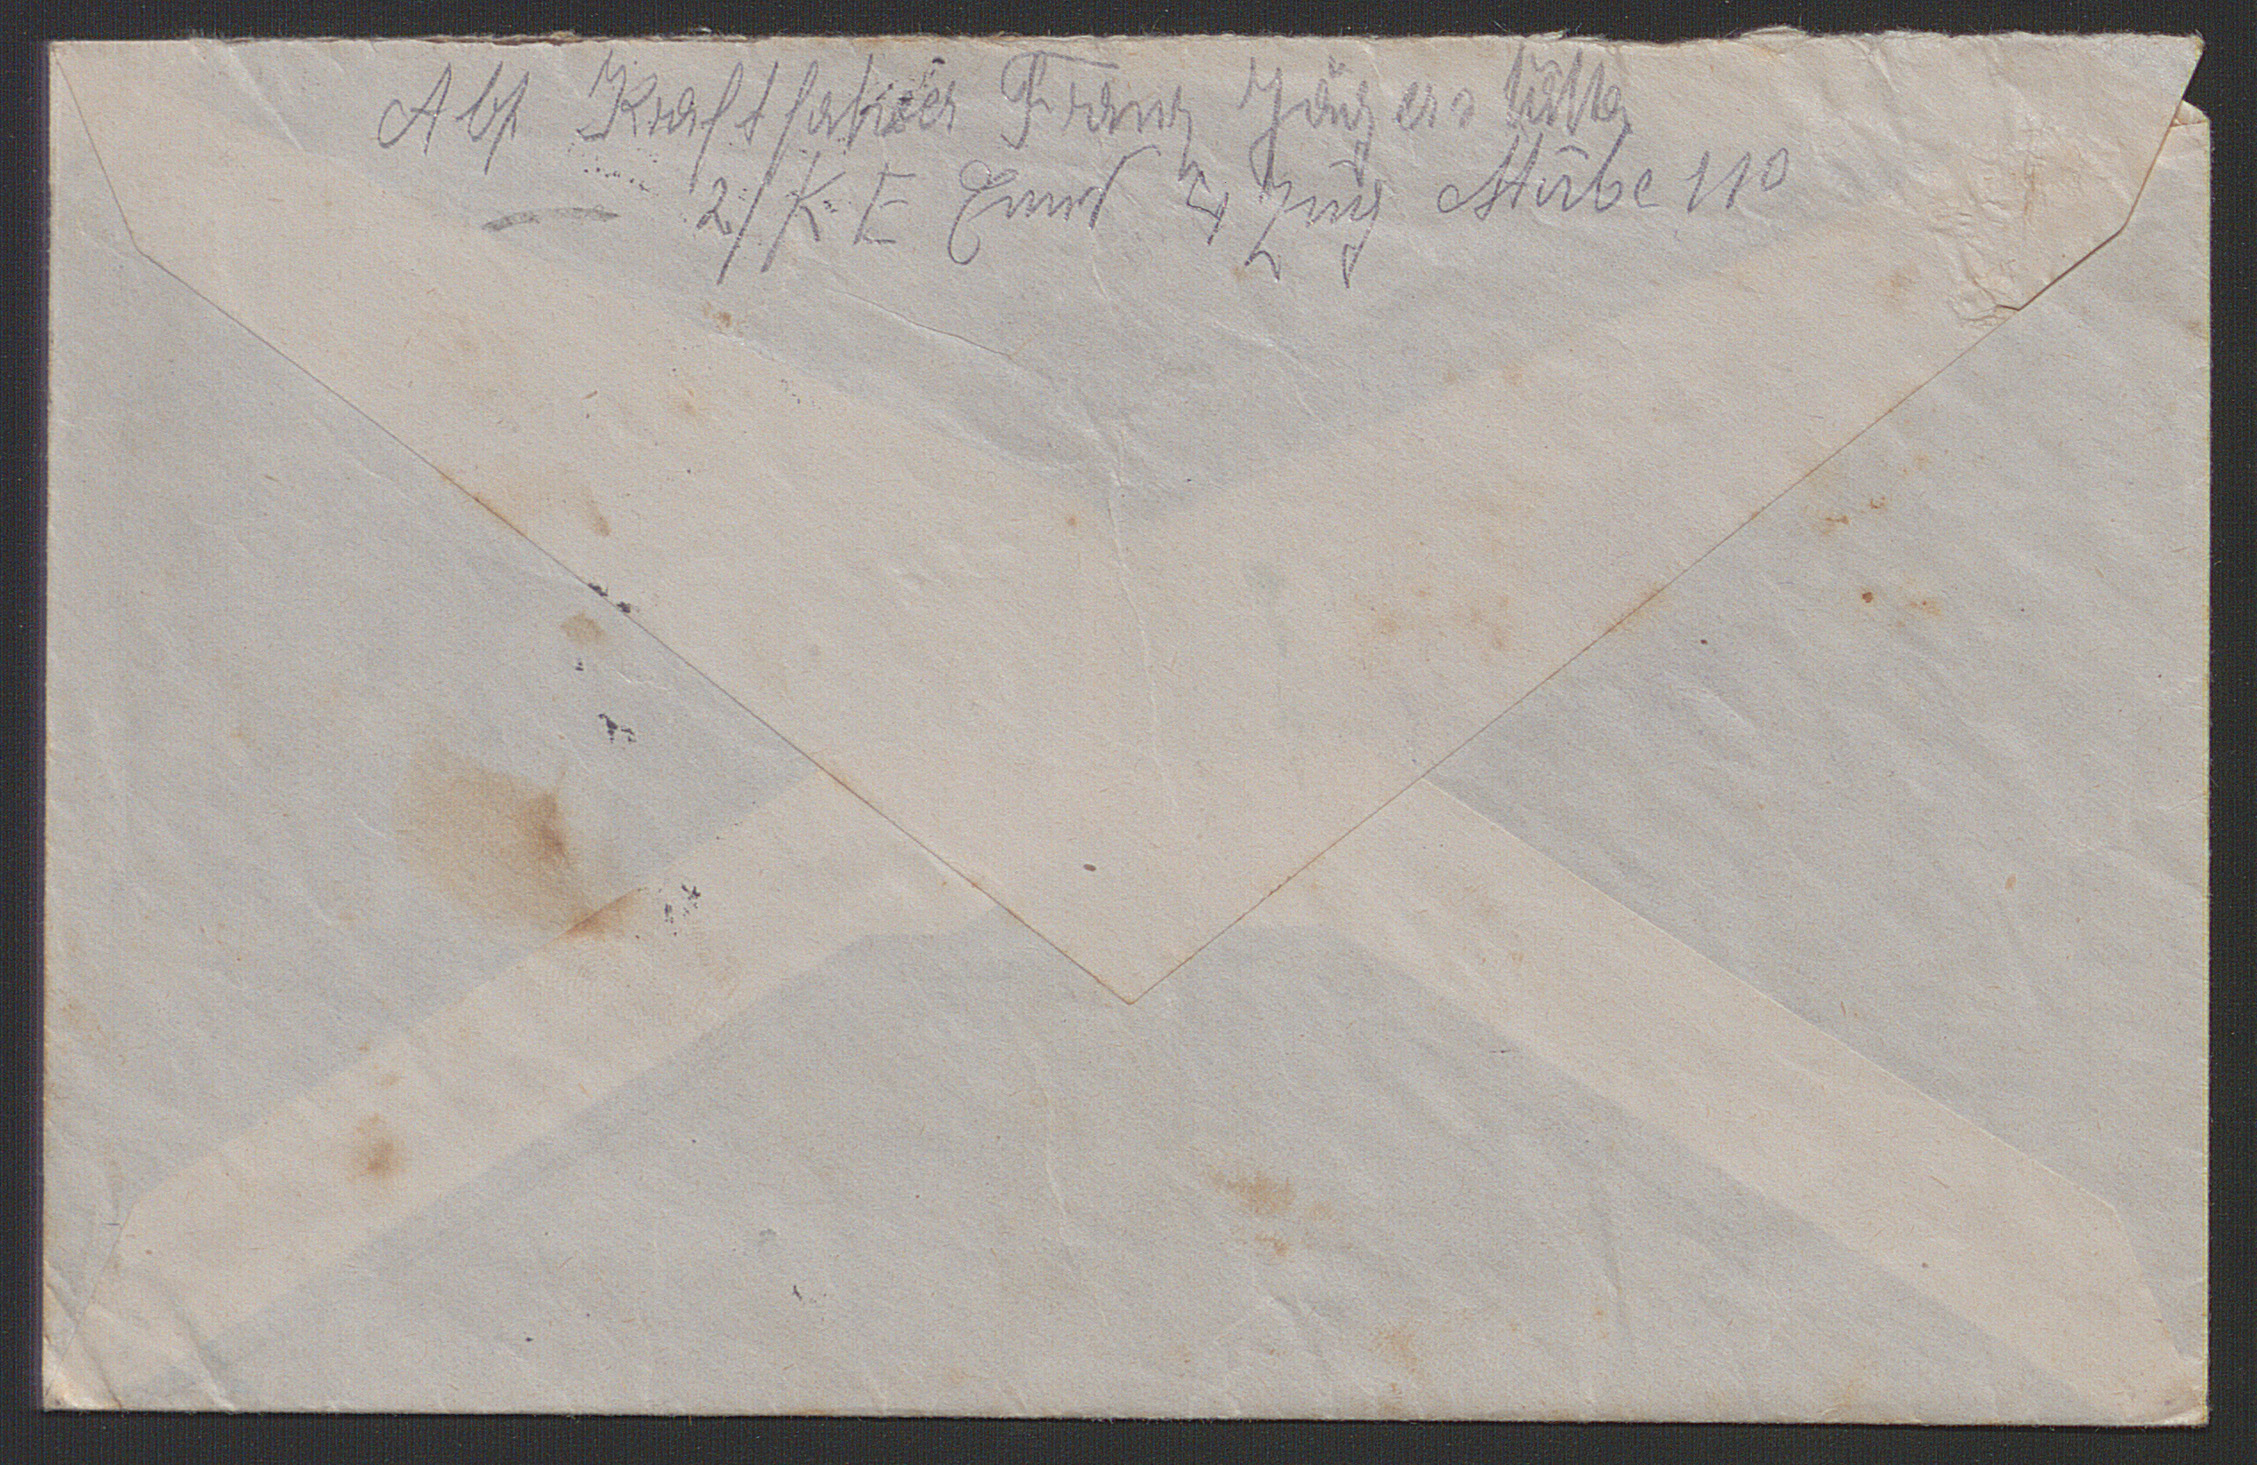 Abs Kraftfahrer Franz Jägerstätter
2/K E Enns 4 Zug Stube 110